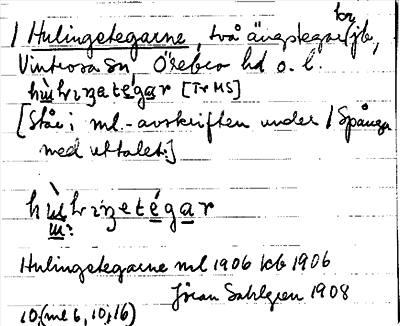 / Hulingstegarne, två ängstegar (jb,
tor
Vintrosa sn Örebro hd o. l.
[TrMS]
[Står i ml.-avskriften under / Spånga
med uttalet:]
Hulingstegarne ml 1906 kb 1906
Jöran Sahlgren 1908
10, (ml 6, 10, 16)